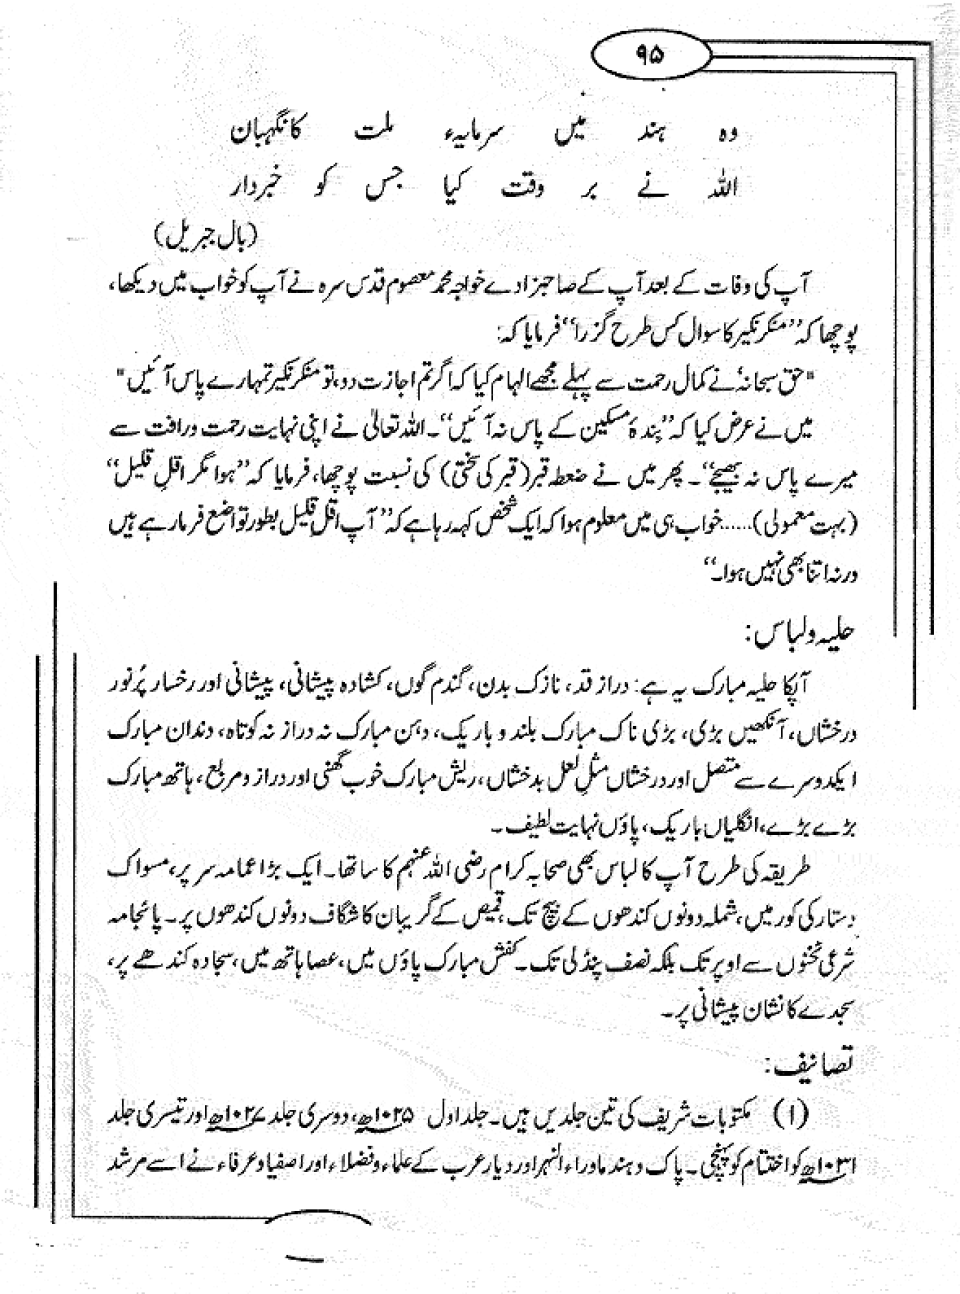 ۹۵
وہ ہند میں سرمایہء ملت کا نگہبان
اللہ نے بر وقت کیا جس کو خبردار
(بال جبریل)
آپ کی وفات کے بعد آپ کے صاحبزادے خواجہ محمد معصوم قدس سرہ نے آپ کو خواب میں دیکھا،
پوچھا کہ ’’منکر نکیر کا سوال کس طرح گزرا‘‘ فرمایا کہ:
"حق سبحانہٗ نے کمال رحمت سے پہلے مجھے الہام کیا کہ اگر تم اجازت دو، تو منکر نکیر تمہارے پاس آئیں"
میں نے عرض کیا کہ ’’بندۂ مسکین کے پاس نہ آئیں‘‘۔ اللہ تعالیٰ نے اپنی نہایت رحمت و رافت سے
میرے پاس نہ بھیجے‘‘۔ پھر میں نے ضغطہ قبر (قبر کی سختی) کی نسبت پوچھا، فرمایا کہ ’’ہوا مگر اقلِ قلیل‘‘
(بہت معمولی)......خواب ہی میں معلوم ہوا کہ ایک شخص کہہ رہا ہے کہ ’’آپ اقلِ قلیل بطور تواضع فرما رہے ہیں
ورنہ اتنا بھی نہیں ہوا۔‘‘
حلیہ و لباس:
آپکا حلیہ مبارک یہ ہے: دراز قد، نازک بدن، گندم گوں، کشادہ پیشانی، پیشانی اور رخسار پُرنور
درخشاں، آنکھیں بڑی، بڑی ناک مبارک بلند و باریک، دہن مبارک نہ دراز نہ کوتاہ، دندان مبارک
ایکدوسرے سے متصل اور درخشاں مثلِ لعل بدخشاں، ریش مبارک خوب گھنی اور دراز و مربع، ہاتھ مبارک
بڑے بڑے، انگلیاں باریک، پاؤں نہایت لطیف۔
طریقہ کی طرح آپ کا لباس بھی صحابہ کرام رضی اللہ عنہم کا سا تھا۔ ایک بڑا عمامہ سر پر، مسواک
دستار کی کور میں، شملہ دونوں کندھوں کے بیچ تک، قمیص کے گریبان کا شگاف دونوں کندھوں پر۔ پائجامہ
شرعی ٹخنوں سے اوپر تک بلکہ نصف پنڈلی تک۔ کفش مبارک پاؤں میں، عصا ہاتھ میں، سجادہ کندھے پر،
سجدے کا نشان پیشانی پر۔
تصانیف:
(۱) مکتوبات شریف کی تین جلدیں ہیں۔ جلد اول ۱۰۲۵ھ، دوسری جلد ۱۰۲۷ھ اور تیسری جلد
۱۰۳۱ھ کو اختتام کو پہنچی۔ پاک و ہند ماوراء النہر اور دیار عرب کے علماء و فضلاء اور اصفیا و عرفاء نے اسے مرشد